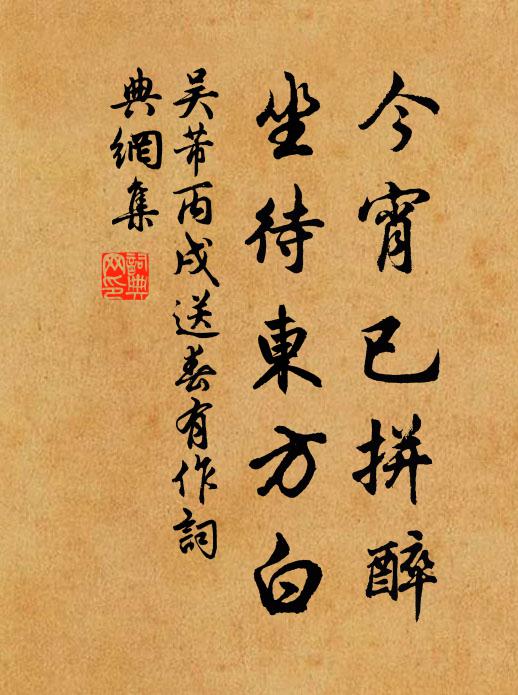 今宵已拼醉
坐待東方白
吴芾丙戌送春有作詞
典網集
詞典網印